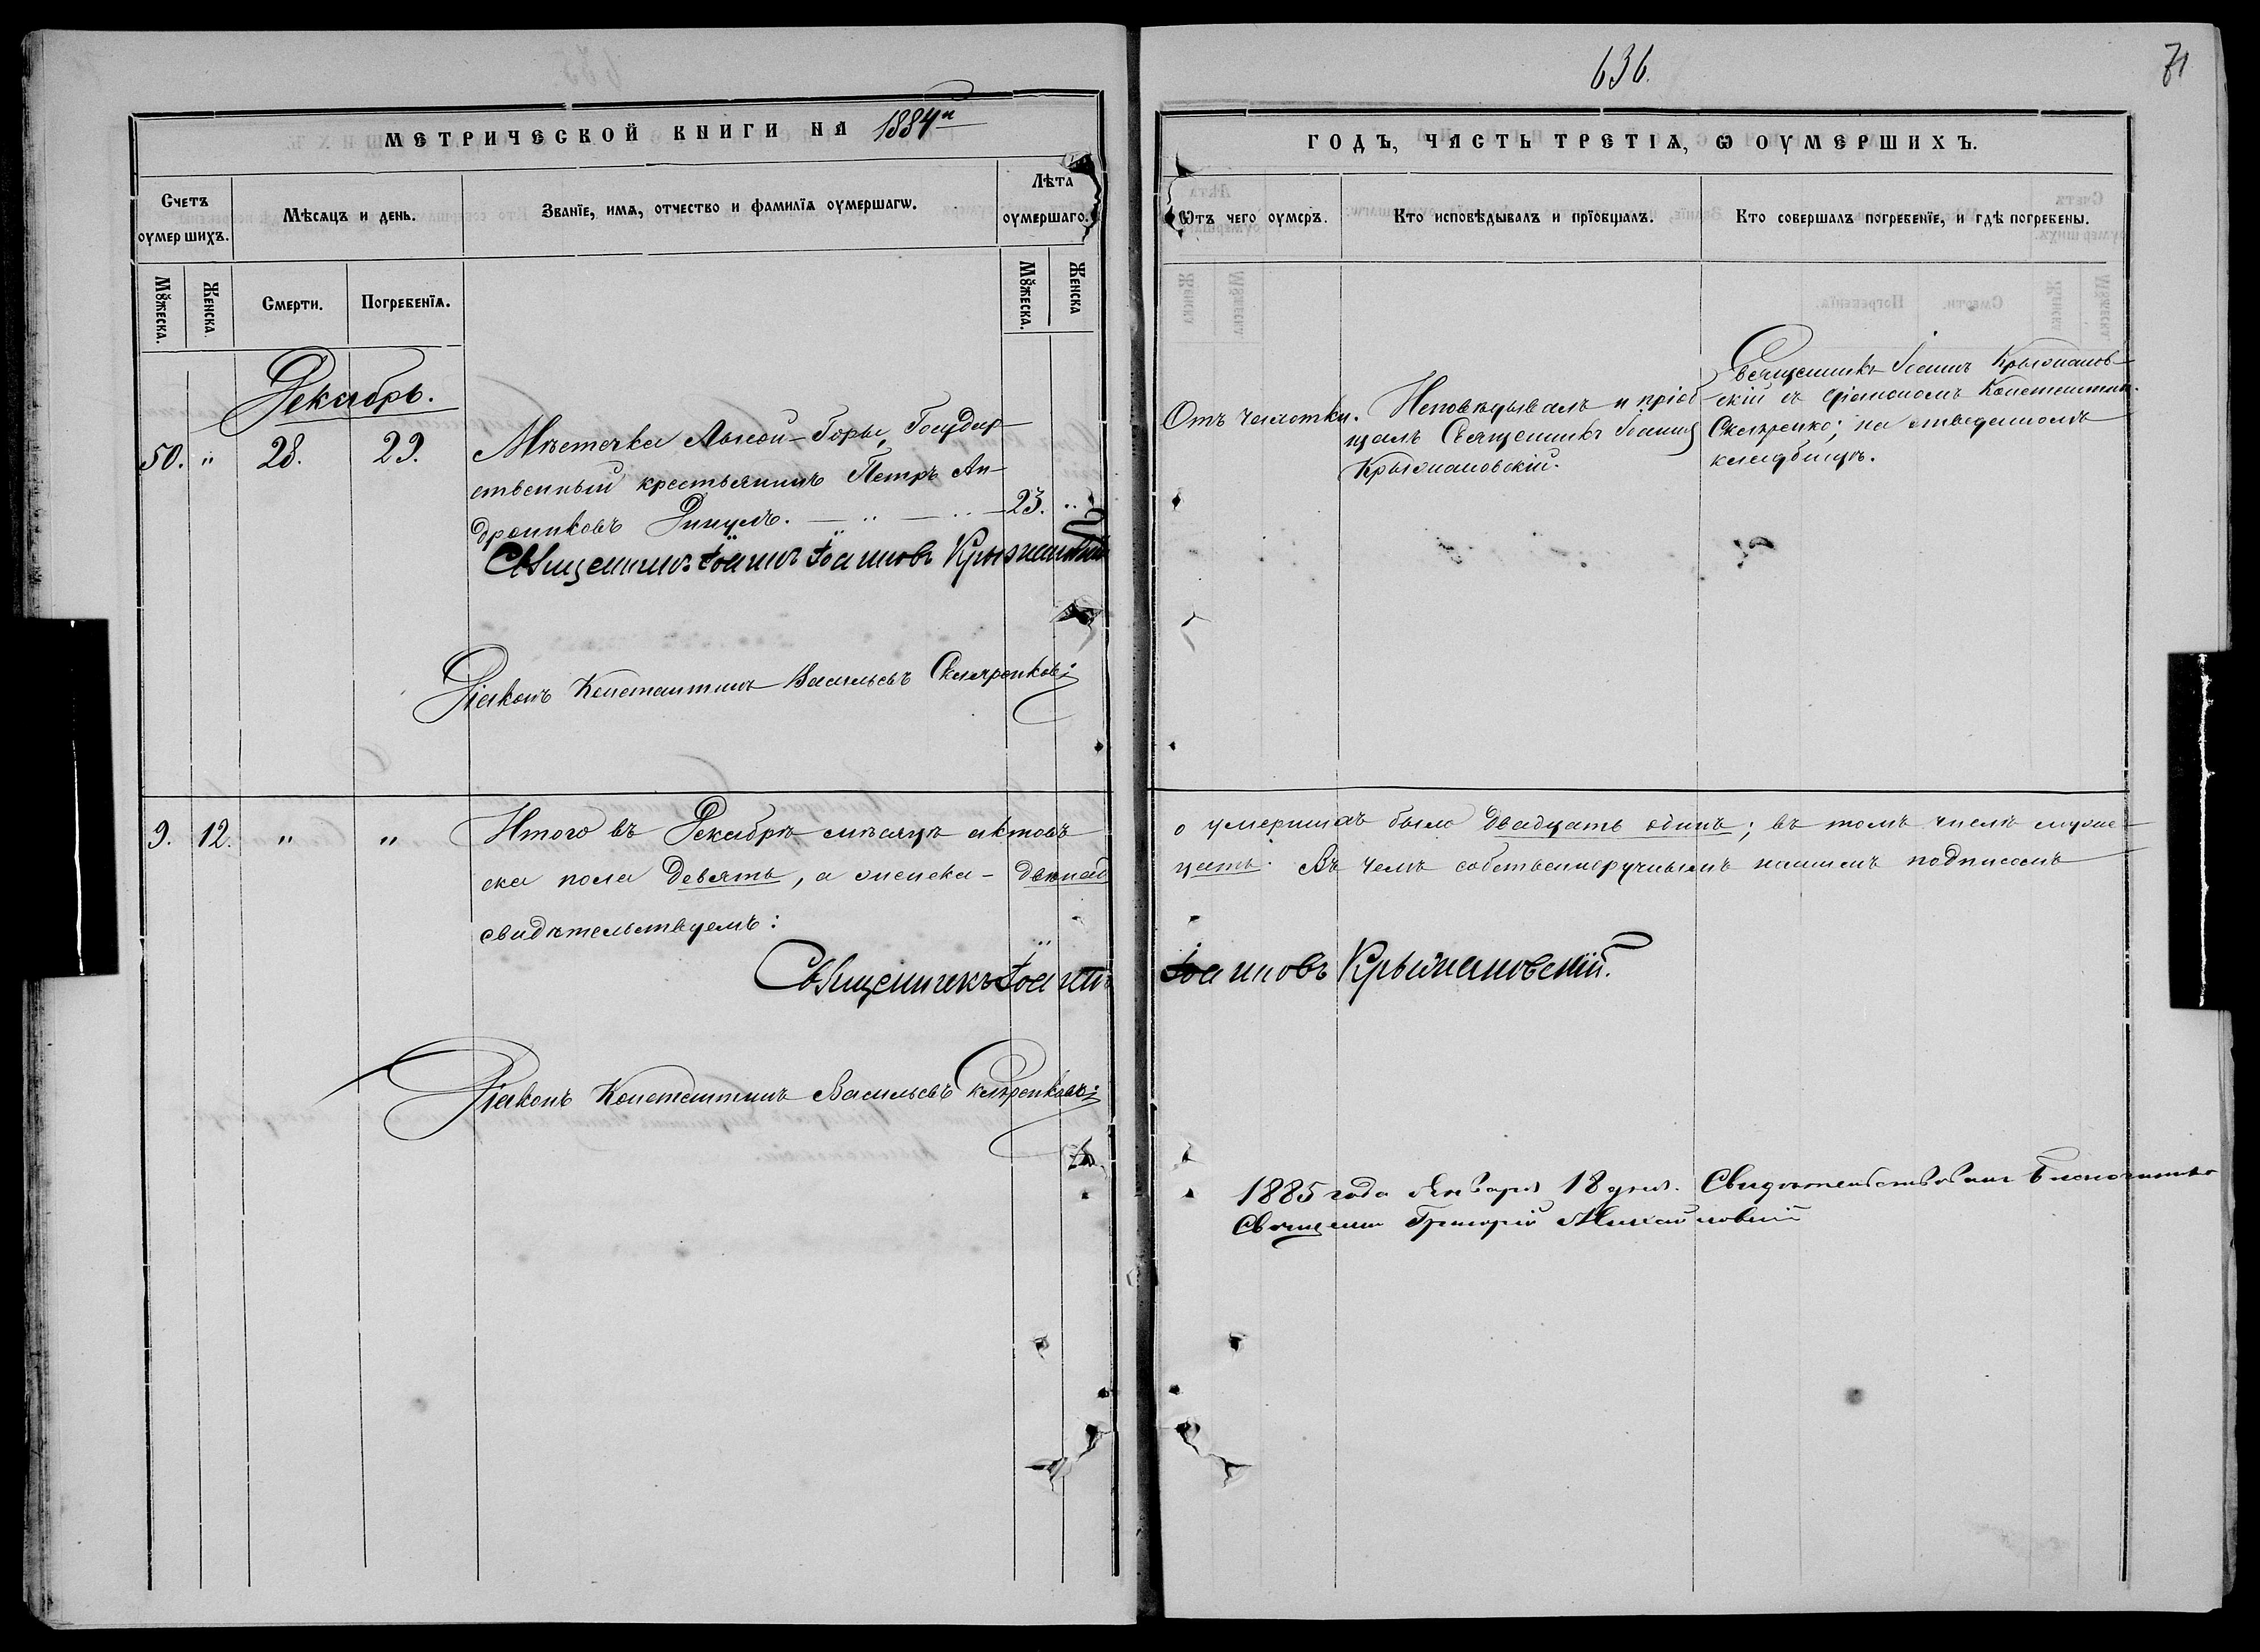 636.
71
МЕТРИЧЕСКОЙ КНИГИ НА 1884й
ГОДЪ, ЧАСТЬ ТРЕТІѦ, Ѡ ОУМЕРШИХЪ.
Счетъ оумершихъ.
Мѣсѧцъ и день.
Званїе, имѧ, отчество и фамилїѧ оумершагѡ.
Лѣта оумершаго.
Ѿтъ чего оумеръ.
Кто исповѣдывалъ и прїобщалъ.
Кто совершалъ погребенїе, и гдѣ погребены.
Мꙋжеска.
Женска.
Смерти.
Погребенїѧ.
Мꙋжеска.
Женска
Декабрь.
50. " 28. 29.
Мѣстечка Лысой-Горы, Государ-
ственный крестьянинъ Петръ Ан-
дрониковъ Дицулъ. 23. "
Отъ чахотки.
Исповѣдывалъ и пріоб
щалъ Священникъ Іоаннъ
Крыжановскій.
Священникъ Іоаннъ Крыжанов-
скій съ діакономъ Константин.
Скляренко; на отведенномъ
кладбищѣ.
Священникъ Іоаннъ Іоанновъ Крыжановскій
Діаконъ Константинъ Васильевъ Скляренковъ
9. 12. " " Итого въ Декабрѣ мѣсяцѣ актовъ о умершихъ было двадцать одинъ; въ томъ числѣ мужe-
ска пола девять, а женска - двѣнадцать. Въ чемъ собственноручнымъ нашимъ подписомъ
свидѣтельствуемъ:
Священникъ Іоаннъ Іоанновъ Крыжановскій.
Діаконъ Константинъ Васильевъ Скляренковъ
1885 года Января 18 дня. Свидѣтельствовалъ Благочинный
Священн Григорій